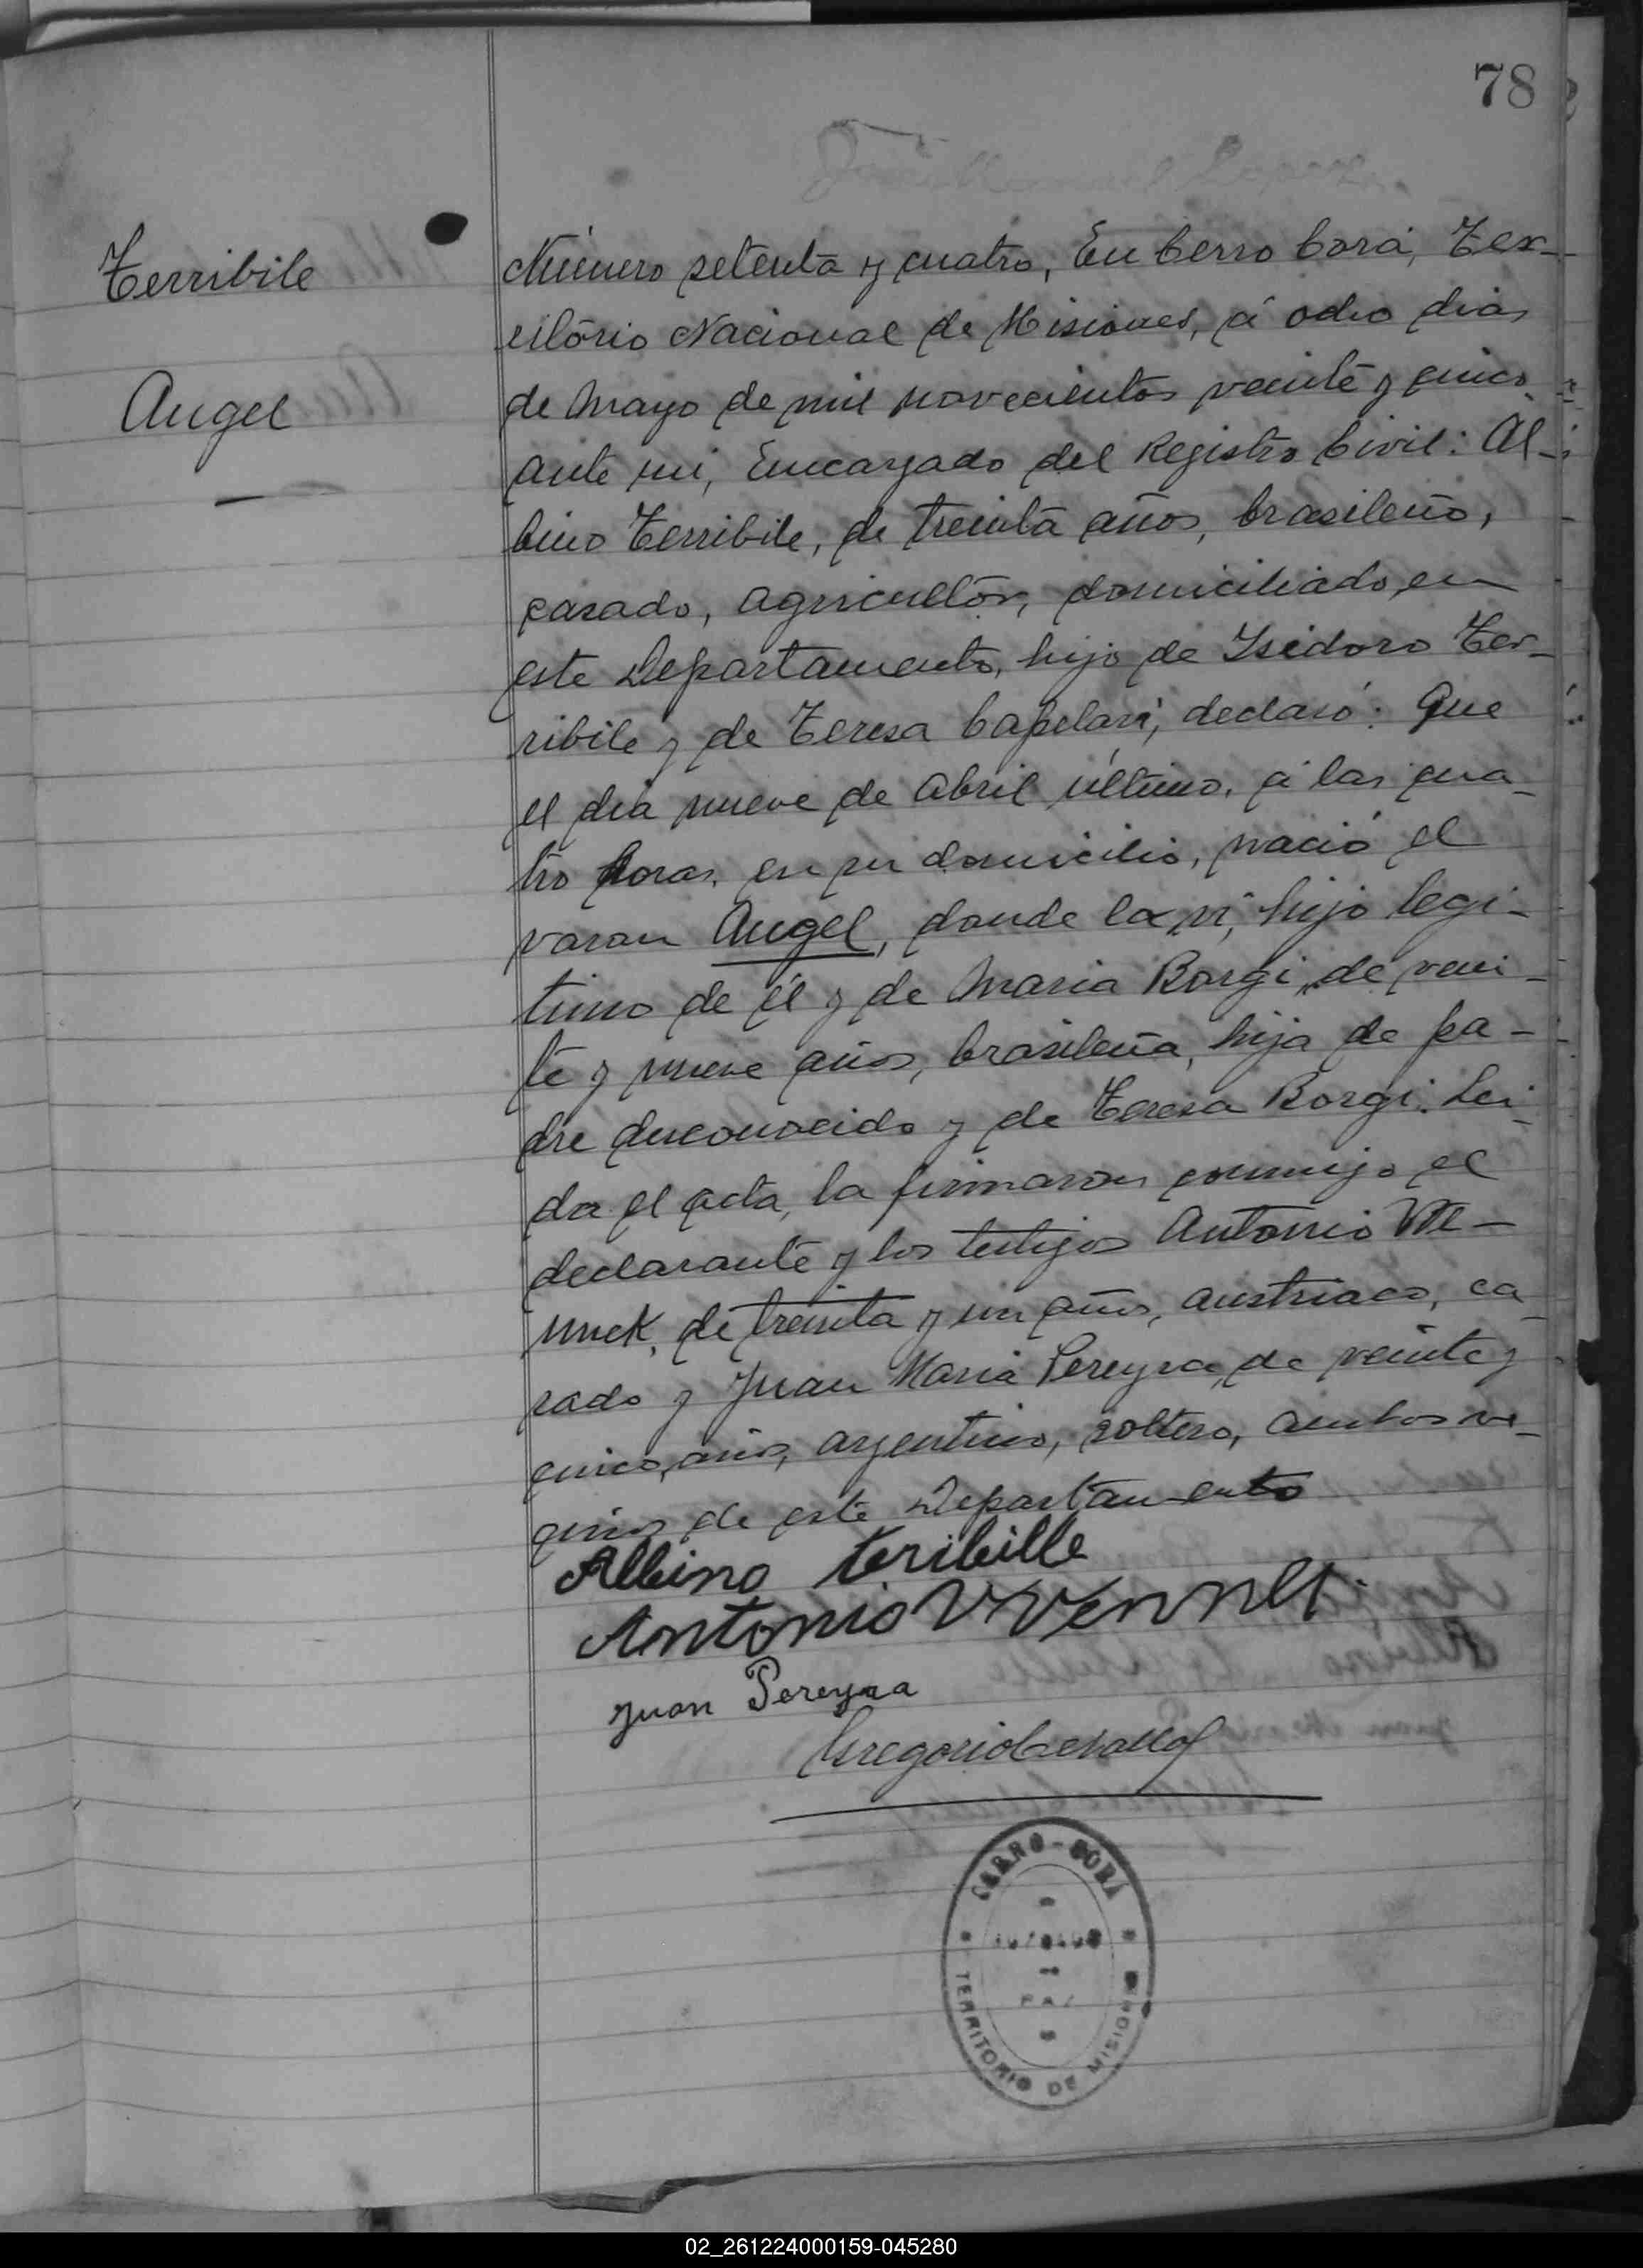 78
Terribile
Angel
Número setenta y cuatro, En Cerro Corá, Ter-
ritorio Nacional de Misiones, á ocho dias
de Mayo de mil novecientos veinte y cinco,
ante mi, Encargado del Registro Civil: Al-
bino Terribile, de treinta años, brasileño,
casado, agricultor, domiciliado, en
este Departamento, hijo de Isidoro Ter-
ribile y de Teresa Capelari, declaró: Que
el dia nueve de Abril último, á las cua-
tro horas, en su domicilio, nació el
varon Angel, donde la vi, hijo legi-
timo de él y de Maria Borgi, de vein-
te y nueve años, brasileña, hija de pa-
dre desconocido y de Teresa Borgi. Lei-
da el acta, la firmaron conmigo el
declarante y los testigos Antonio We-
nnek, de treinta y un años, austriaco, ca-
sado y Juan Maria Pereyra, de veinte y
cinco, años, argentino, soltero, ambos ve-
cinos de este Departamento
Albino teribille
Antonio
Juan Pereyra
Gregorio Ceballos
CERRO-CORÁ
JUZGADO
DE
PAZ
TERRITORIO DE MISIONES
02_261224000159-045280